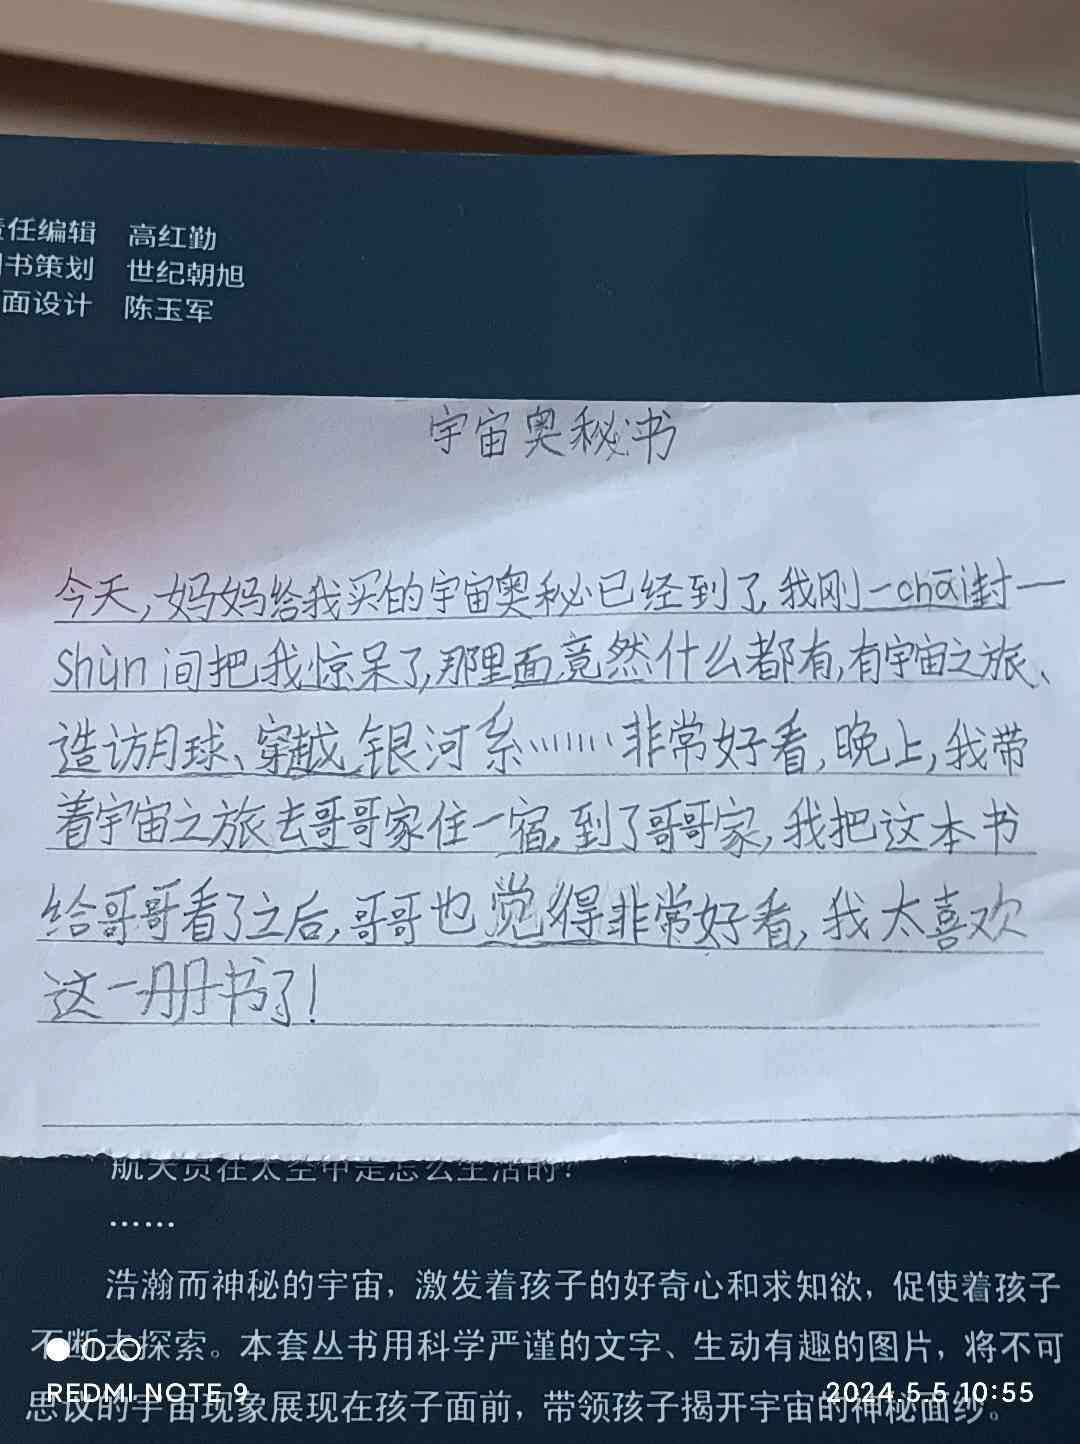 责任编辑 高红勤
书策划 世纪朝旭
面设计 陈玉军
宇宙奥秘书
今天,妈妈给我买的宇宙奥秘已经到了,我刚一chāi封一
shùn间把我惊呆了,那里面竟然什么都有,有宇宙之旅、
造访月球、穿越银河系………非常好看,晚上,我带
着宇宙之旅去哥哥家住一宿,到了哥哥家,我把这本书
给哥哥看了之后,哥哥也觉得非常好看,我太喜欢
这一册书了!
航天员在太空中是怎么生活的?
……
浩瀚而神秘的宇宙，激发着孩子的好奇心和求知欲，促使着孩子
不断去探索。本套丛书用科学严谨的文字、生动有趣的图片，将不可
思议的宇宙现象展现在孩子面前，带领孩子揭开宇宙的神秘面纱。
REDMI NOTE 9
2024.5.5 10:55